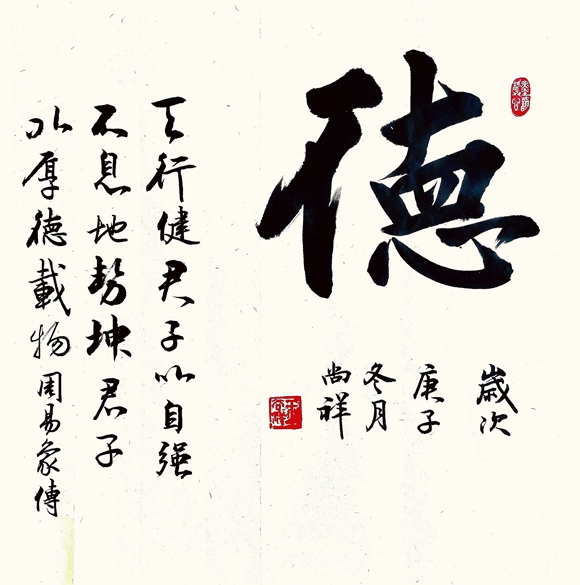 德
歲次
庚子
冬月
尚祥
天行健君子以自强
不息地勢坤君子
以厚德載物周易象傳